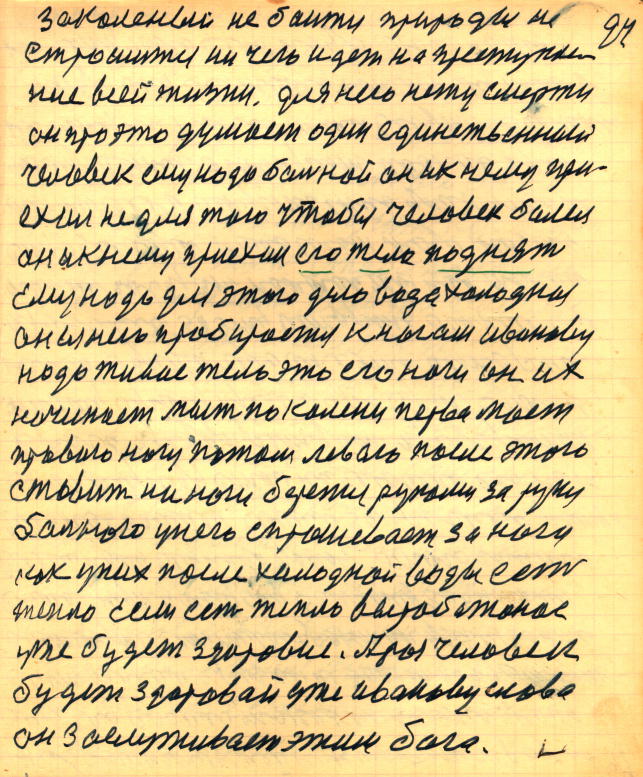 заколеный не боится природы не 94
строшится ни чего идет на преступле
ние всей жизни. для него нету смерти
он про это думает один единственный
человек ему надо больной он ик нему при-
ехал не для того чтобы человек болел
он ик нему приехал его тело поднят
ему надо для этого дело вода холодная
он у него пробирается к ногам иванову
надо живое тело это его ноги он их
начинает мыт по колени перва моет
правою ногу потом леваю после этого
ставит на ноги берется руками за руки
больного у него спрашевает за ноги
как у них после халодной воды ест
тепло если ест тепло выроботоное
уже будет здоровие. А раз человек
будет здоровай уже иванову слова
он заслуживает этим бога.